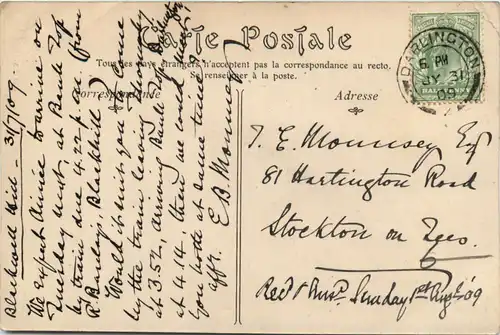 Carte Postale
Tous les pays étrangers n'acceptent pas la correspondance au recto.
Se renseigner à la poste.
Correspondance
Adresse
DARLINGTON
6 PM
JY 31
09
Blackwell Hill – 31/7/09
We expect Aimée Warine on
Tuesday next, at Bank Top
by train due 4.22 p.m. (from
R. Barclay's, Blackhill
Would it suit you to come
by the train leaving Thornaby
at 3.52, arriving Bank Top
at 4.14 then we could meet
you both at same time?
affte. E. B. Mounsey
J. E. Mounsey Esq
81 Hartington Road
Stockton on Tees.
Recd & Ansd Sunday 1st Aug '09